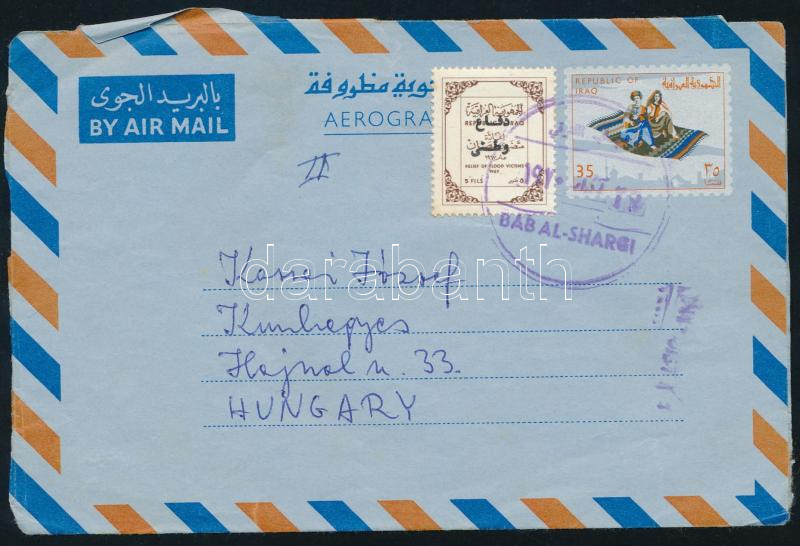 بالبريد الجوى
BY AIR MAIL
جوية مظروفة
AEROGRA
الجمهورية العراقية
دفاع
وطني
RELIEF OF FLOOD VICTIMS
1967
5 FILS
REPUBLIC OF
IRAQ
الجمهورية العراقية
35
٣٥
١٩٧٠
BAB AL-SHARGI
II
József
Kunhegyes
Hajnal u. 33.
HUNGARY
darabanth